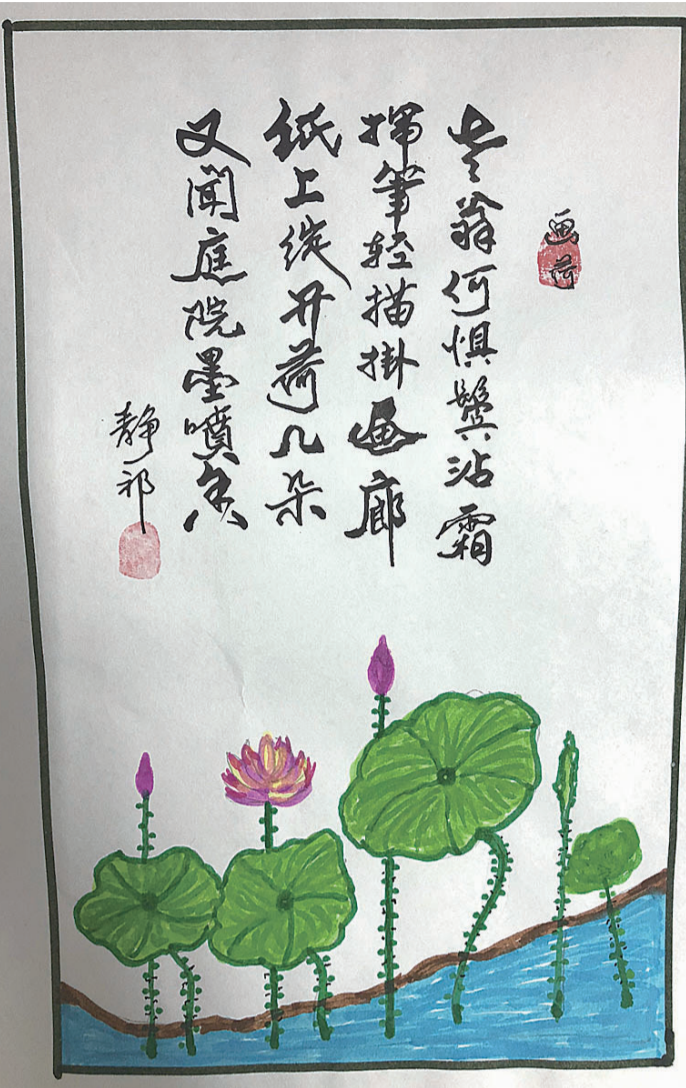 画荷
老翁何惧鬓沾霜
挥筆轻描掛画廊
纸上绽开荷几朵
又闻庭院墨噴香
静祁